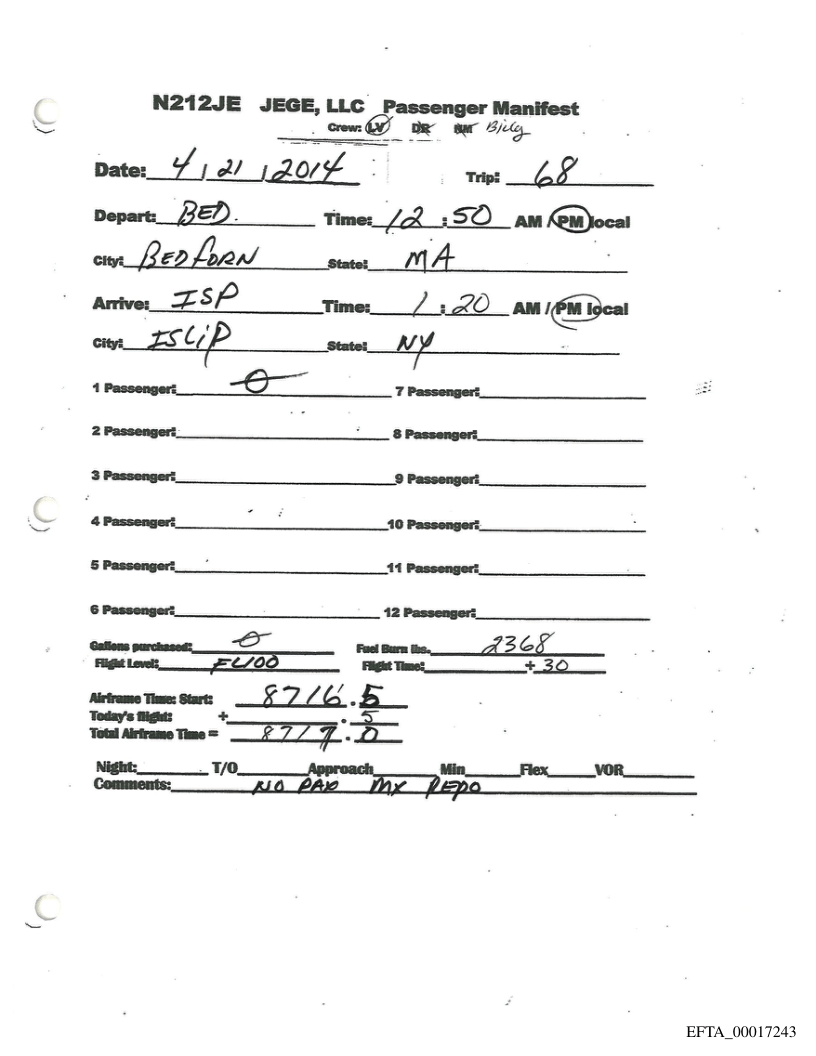 N212JE JEGE, LLC Passenger Manifest
Crew: LV DR NM
Date: 4 / 21 / 2014 Trip: 68
Depart: BED. Time: 12 : 50 AM / PM local
City: BEDFORN State: MA
Arrive: ISP Time: 1 : 20 AM / PM local
City: ISLIP State: NY
1 Passenger: 0 7 Passenger:
2 Passenger: 8 Passenger:
3 Passenger: 9 Passenger:
4 Passenger: 10 Passenger:
5 Passenger: 11 Passenger:
6 Passenger: 12 Passenger:
Gallons purchased: 0 Fuel Burn lbs. 2368
Flight Level: FL100 Flight Time: + 30
Airframe Time: Start: 8716 . 5
Today's flight: + . 5
Total Airframe Time = 8717 . 0
Night: T/O Approach Min Flex VOR
Comments: NO PAX MX REPO
EFTA_00017243